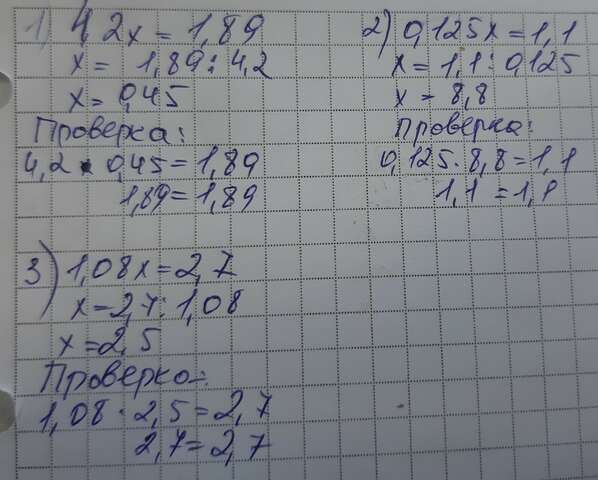 1) 4,2x = 1,89
x = 1,89 : 4,2
x = 0,45
Проверка:
4,2 · 0,45 = 1,89
1,89 = 1,89
2) 0,125x = 1,1
x = 1,1 : 0,125
x = 8,8
Проверка:
0,125 · 8,8 = 1,1
1,1 = 1,1
3) 1,08x = 2,7
x = 2,7 : 1,08
x = 2,5
Проверка:
1,08 · 2,5 = 2,7
2,7 = 2,7